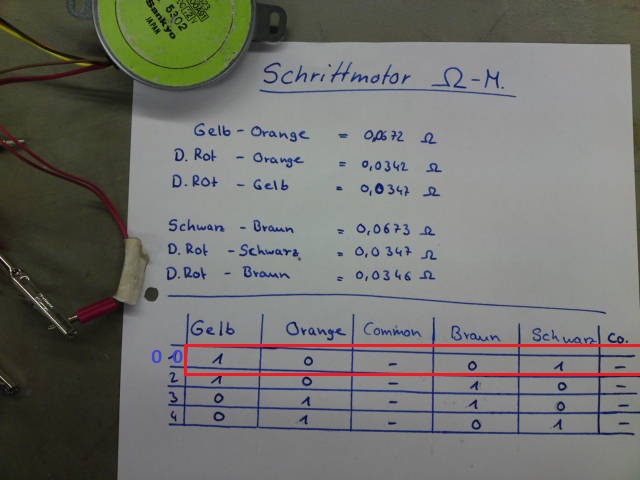 5302
Sankyo
JAPAN
Schrittmotor Ω-M.
Gelb - Orange = 0,0672 Ω
D. Rot - Orange = 0,0342 Ω
D. Rot - Gelb = 0,0347 Ω
Schwarz - Braun = 0,0673 Ω
D. Rot - Schwarz = 0,0347 Ω
D. Rot - Braun = 0,0346 Ω
Gelb Orange Common Braun Schwarz Co.
0 0 1 0 - 0 1 -
2 1 0 - 1 0 -
3 0 1 - 1 0 -
4 0 1 - 0 1 -